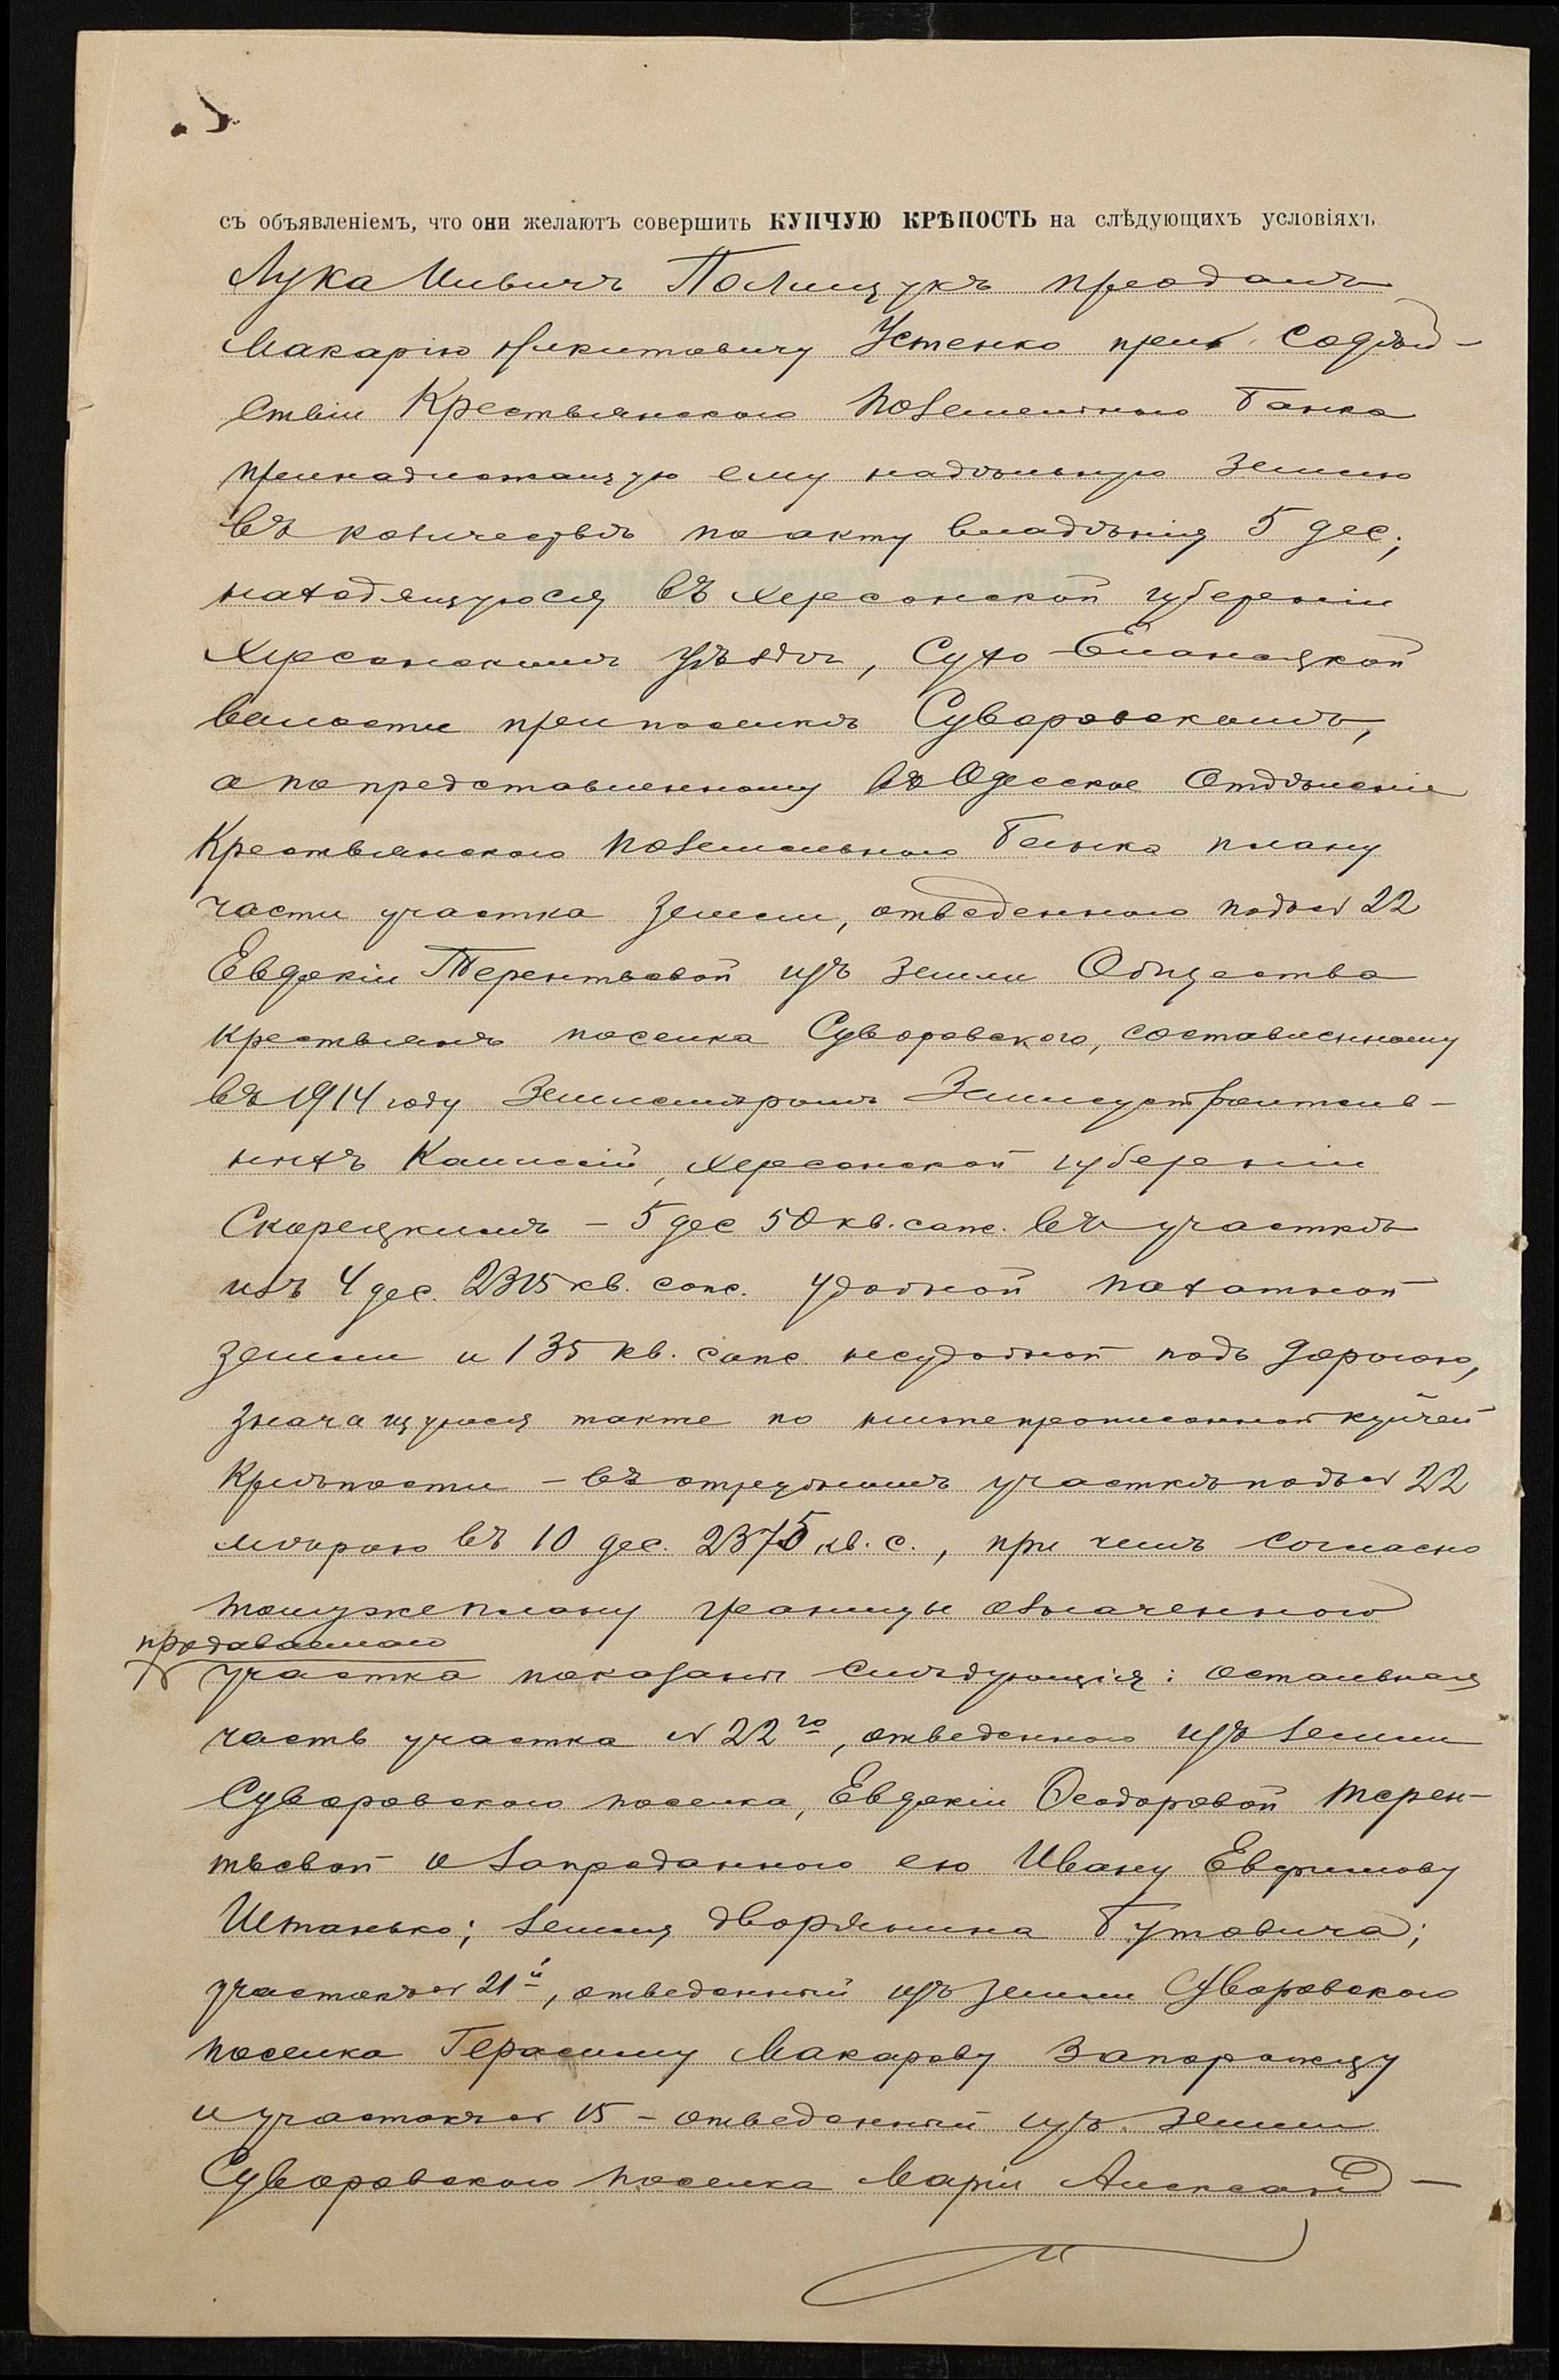 съ объявленіемъ, что они желаютъ совершить КУПЧУЮ КРѢПОСТЬ на слѣдующихъ условіяхъ
Лука Полищукъ продалъ
Макарію Никитовичу Устенко при содѣй-
ствіи Крестьянскаго Поземельнаго Банка
принадлежащую ему надѣльную землю
въ количествѣ по акту владѣнія 5 дес.,
находящуюся въ Херсонской губерніи
Херсонскомъ уѣздѣ, Сухо-Еланецкой
волости при поселкѣ Суворовскомъ,
а по представленному въ Одесское Отдѣленіе
Крестьянскаго Поземельнаго Банка плану
части участка земли, отведеннаго подъ № 22
Евдокіи Терентьевой изъ земли Общества
крестьянъ поселка Суворовскаго, составленному
въ 1914 году Землемѣромъ Землеустроитель-
ныхъ Комиссій, Херсонской губерніи
Скорецкимъ – 5 дес 50 кв. саж. въ участкѣ
изъ 4 дес. 2315 кв. саж. удобной пахатной
земли и 135 кв. саж. неудобной подъ дорогою,
значащуюся также по нижепрописанной купчей
крѣпости – въ отрубномъ участкѣ подъ № 22
мѣрою въ 10 дес. 2375 кв. с., при чемъ согласно
тому же плану границы означеннаго
продаваемаго
участка показаны слѣдующія: остальная
часть участка № 22го, отведеннаго изъ земли
Суворовскаго поселка, Евдокіи Ѳеодоровой Терен-
тьевой и запроданнаго ею Ивану Евфимову
Штанько; земля дворянина Бутовича;
участокъ № 21й, отведенный изъ земли Суворовскаго
поселка Герасиму Макарову Запорожцу
и участокъ № 15 – отведенный изъ земли
Суворовскаго поселка Маріи Александ-